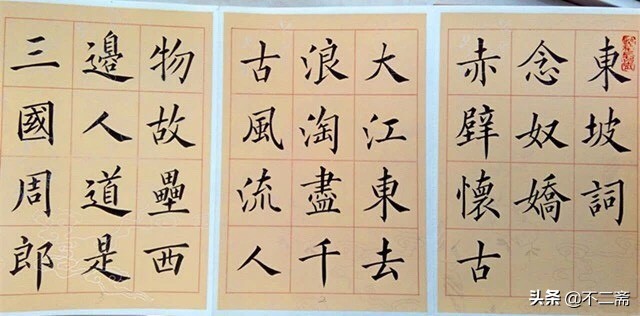 東坡詞
念奴嬌
赤壁懷古
大江東去
浪淘盡千
古風流人
物故壘西
邊人道是
三國周郎
头条 @不二斋